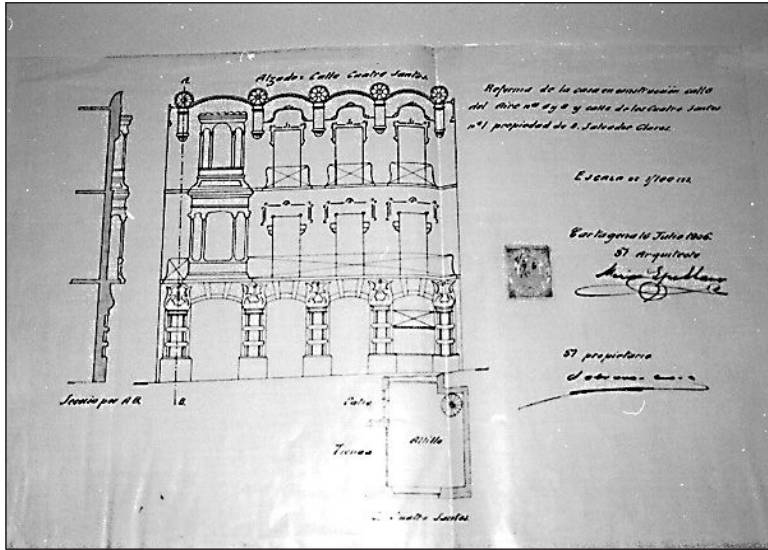 Alzado = Calle Cuatro Santos.
Reforma de la casa en construcción calle
del Aire nº y 8 y calle de los Cuatro Santos
nº 1 propiedad de D. Salvador Clares.
Escala de 1/100
Cartagena 16 Julio 1906.
El Arquitecto
El propietario
Sección por A B.
B.
Patio
Altillo
Tienda
C. Cuatro Santos.